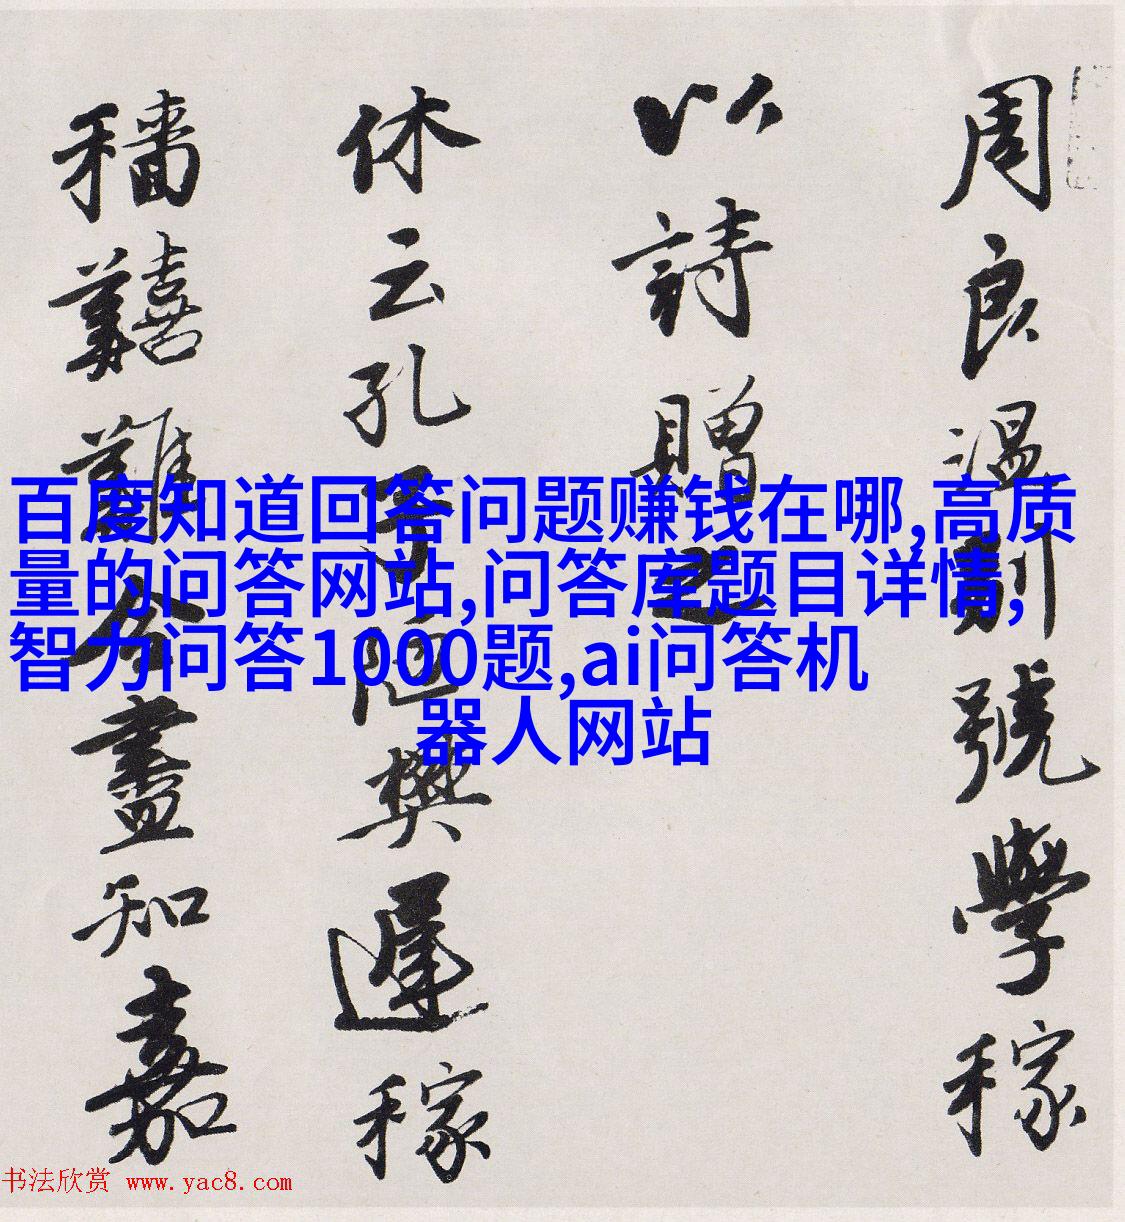 周良温别號學稼
以詩贈之
休云孔子陋樊遲稼
穡囏難合盡知嘉
百度知道回答问题赚钱在哪,高质
量的问答网站,问答库题目详情,
智力问答1000题,ai问答机
器人网站
书法欣赏 www.yac8.com